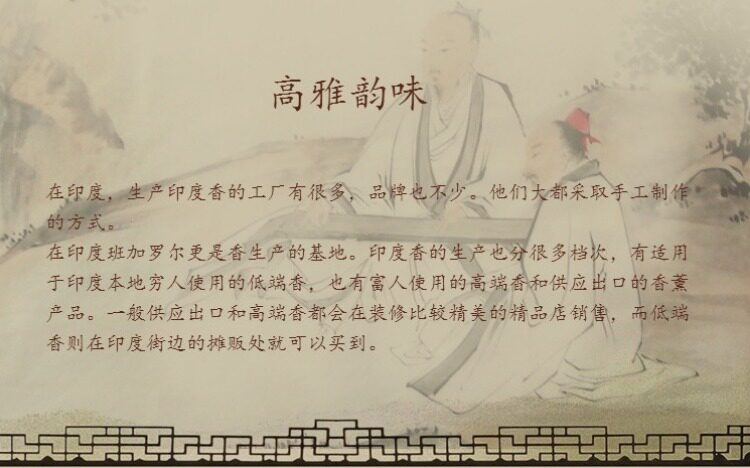 高雅韵味
在印度，生产印度香的工厂有很多，品牌也不少。他们大都采取手工制作
的方式。
在印度班加罗尔更是香生产的基地。印度香的生产也分很多档次，有适用
于印度本地穷人使用的低端香，也有富人使用的高端香和供应出口的香薰
产品。一般供应出口和高端香都会在装修比较精美的精品店销售，而低端
香则在印度街边的摊贩处就可以买到。